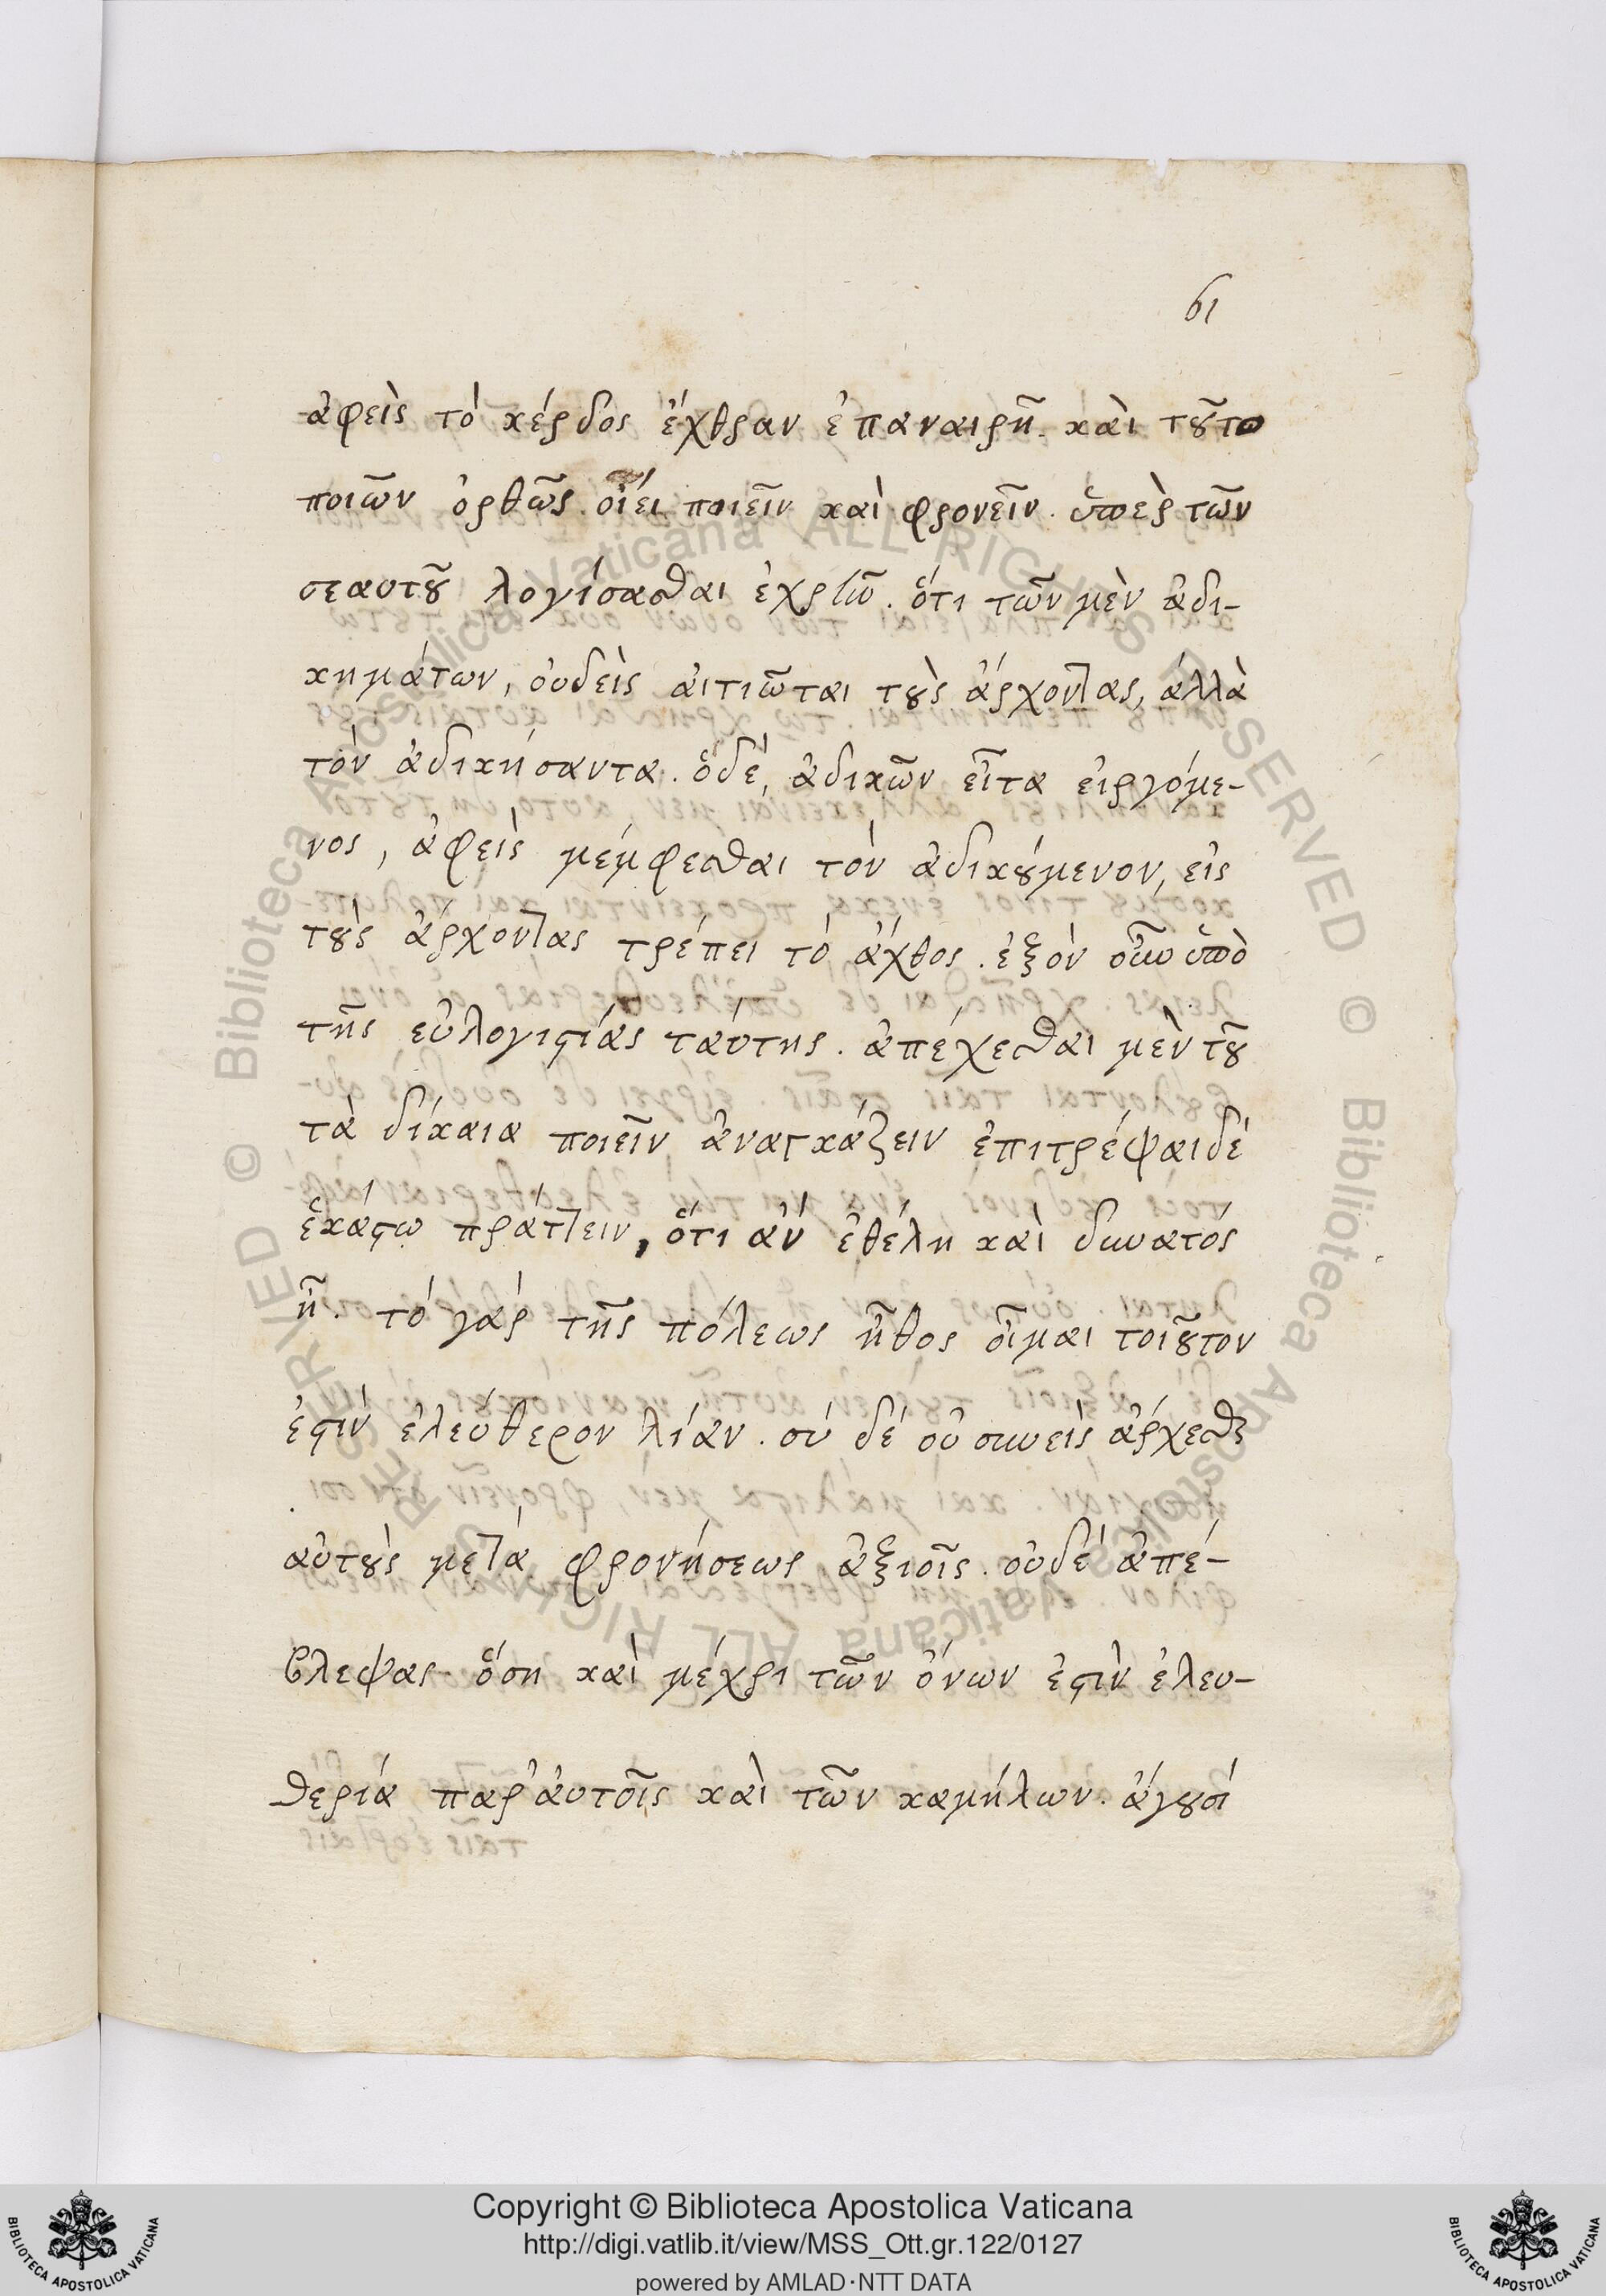 61
ἀφεὶς τὸ κέρδος ἔχθραν ἐπαναιρῇ. καὶ τοῦτο
ποιῶν ὀρθῶς. οἴει ποιεῖν καὶ φρονεῖν. ὑπὲρ τῶν
σεαυτοῦ λογίσασθαι ἐχρῆν. ὅτι τῶν μὲν ἀδι-
κημάτων, οὐδεὶς αἰτιῶται τοὺς ἄρχοντας, ἀλλὰ
τὸν ἀδικήσαντα. ὁδὲ, ἀδικῶν εἶτα εἰργόμε-
νος, ἀφεὶς μέμφεσθαι τὸν ἀδικούμενον, εἰς
τοὺς ἄρχοντας τρέπει τὸ ἄχθος. ἐξὸν οὖν ὑπὸ
τῆς εὐλογιστίας ταύτης. ἀπέχεσθαι μὲν τοῦ
τὰ δίκαια ποιεῖν ἀναγκάζειν ἐπιτρέψαι δὲ
ἑκάστω πράττειν, ὅτι ἂν ἐθέλη καὶ δυνατός
ἦ. τὸ γὰρ τῆς πόλεως ἦθος οἶμαι τοιοῦτον
ἐστὶν ἐλεύθερον λίαν. σύ δὲ οὐ συνεὶς ἄρχεσθαι
αὐτοὺς μετὰ φρονήσεως ἀξιοῖς. οὐδὲ ἀπέ-
βλεψας ὅση καὶ μέχρι τῶν ὄνων ἐστὶν ἐλευ-
θερία παρ' αὐτοῖς καὶ τῶν καμήλων. ἄγουσί
Copyright © Biblioteca Apostolica Vaticana
http://digi.vatlib.it/view/MSS_Ott.gr.122/0127
powered by AMLAD·NTT DATA
BIBLIOTECA APOSTOLICA VATICANA
BIBLIOTECA APOSTOLICA VATICANA
© Biblioteca Apostolica Vaticana ALL RIGHTS RESERVED
© Biblioteca Apostolica Vaticana ALL RIGHTS RESERVED